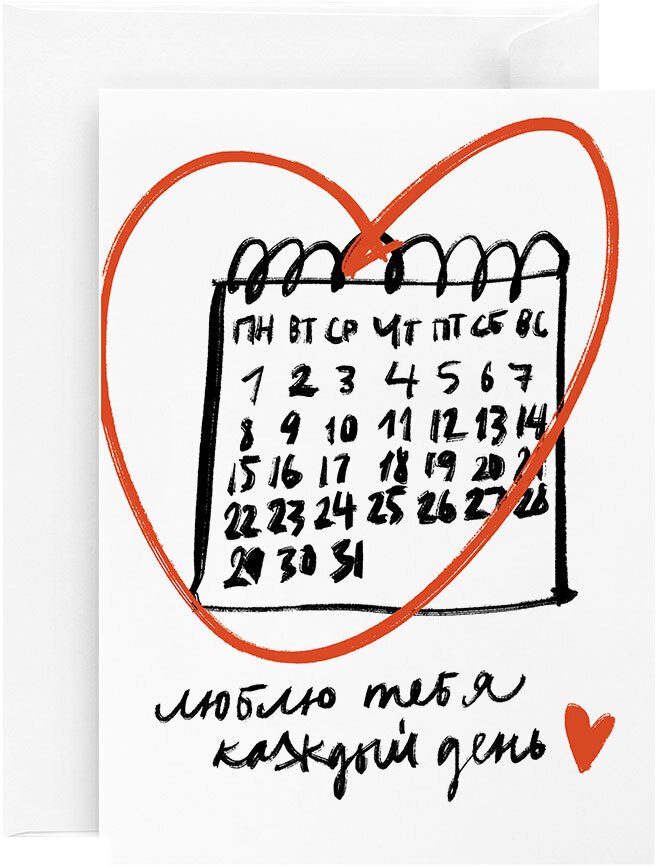 ПН ВТ СР ЧТ ПТ СБ ВС
1 2 3 4 5 6 7
8 9 10 11 12 13 14
15 16 17 18 19 20 21
22 23 24 25 26 27 28
29 30 31
люблю тебя
каждый день